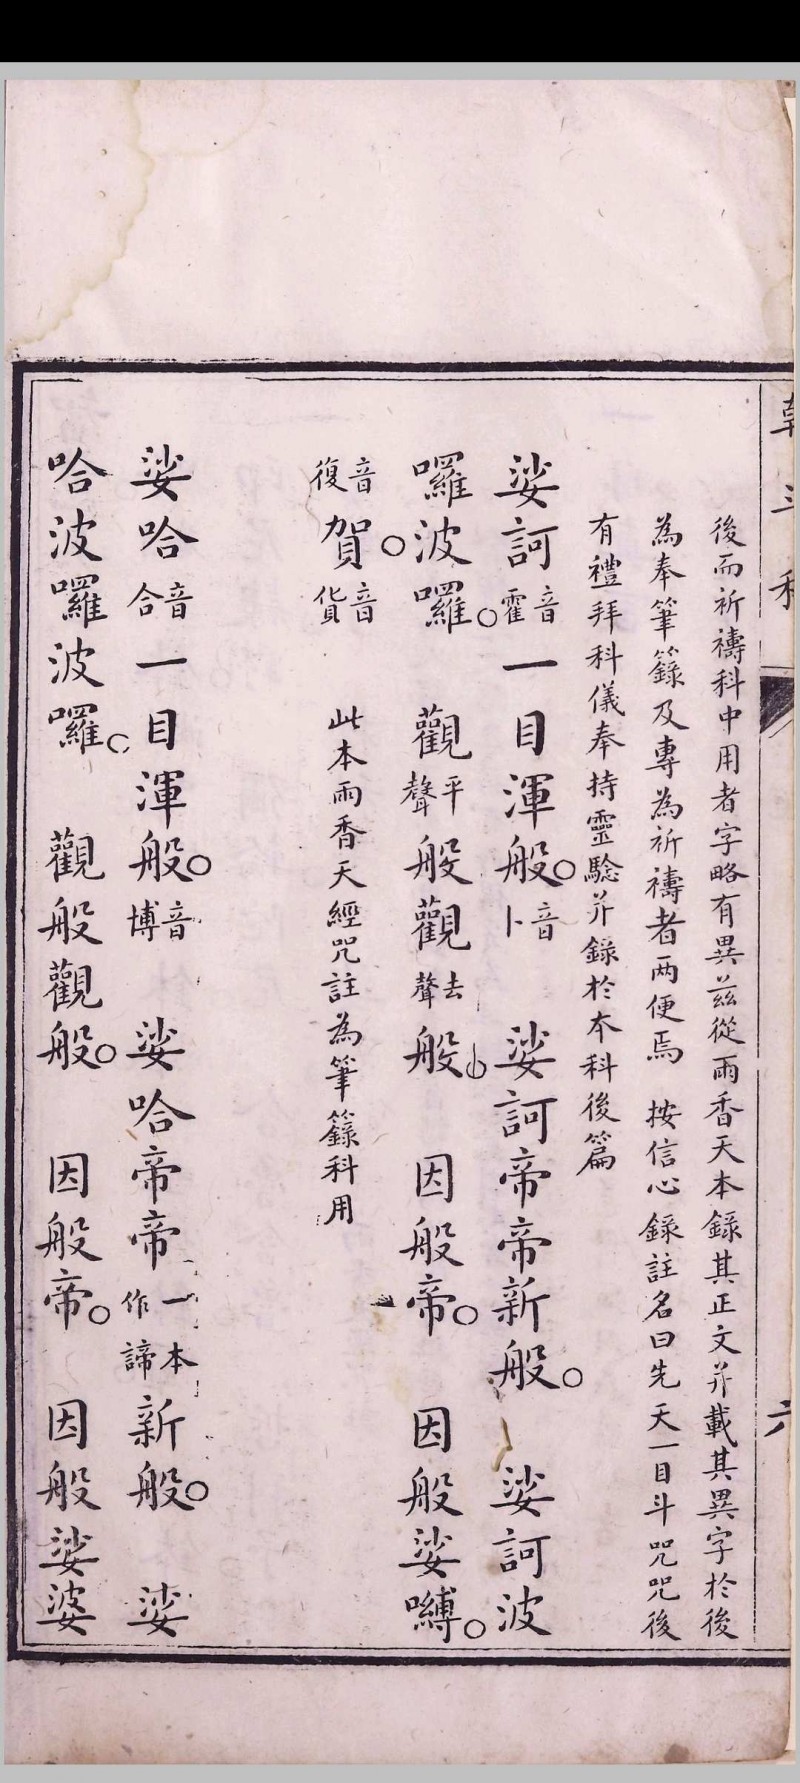 斗
六
後而祈禱科中用者字略有異茲從雨香天本錄其正文并載其異字於後
為奉筆籙及專為祈禱者两便焉　按信心錄註名曰先天一目斗咒咒後
有禮拜科儀奉持靈驗并錄於本科後篇
娑訶音霍一目渾般○音卜　娑訶帝帝新般○　娑訶波
囉波囉○　觀平聲般觀去聲般○　因般帝○　因般娑嚩○
音復賀○音貨　此本雨香天經咒註為筆籙科用
娑哈音合一目渾般○音博　娑哈帝帝一本作諦新般○　娑
哈波囉波囉○　觀般觀般○　因般帝○　因般娑婆